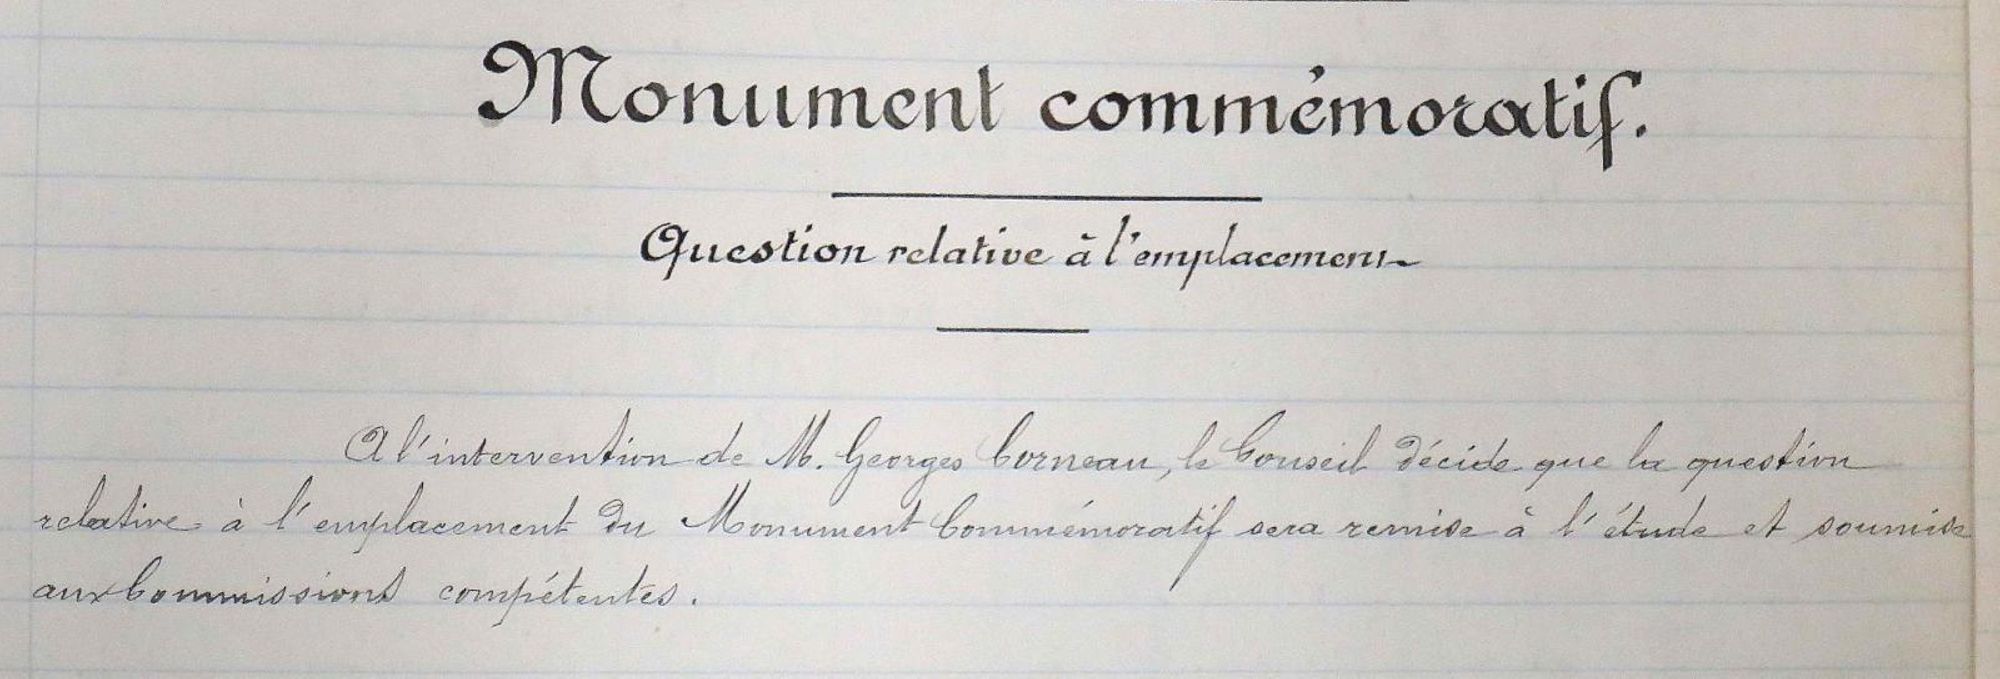 Monument commémoratif.
Question relative à l'emplacement
A l'intervention de M. Georges Corneau, le Conseil décide que la question
relative à l'emplacement du Monument Commémoratif sera remise à l'étude et soumise
aux Commissions compétentes.